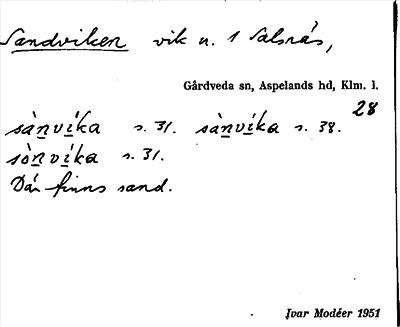 Sandviken vik n. 1 Salsnäs,
Gårdveda sn, Aspelands hd, Klm. l.
28
sàn̲vi̲ka s. 31. sàn̲vi̲ka s. 38.
sòn̲vi̲ka s. 31.
Där finns sand.
Ivar Modéer 1951